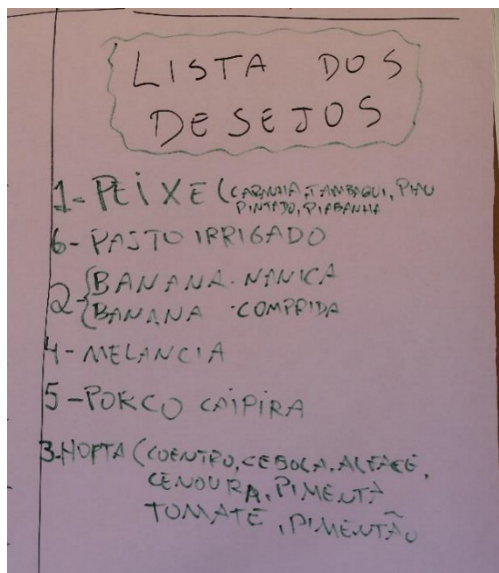 LISTA DOS
DESEJOS
1-PEIXE (CARANHA, TAMBAQUI, PIAU
PINTADO, PIABANHA
6-PASTO IRRIGADO
2-{BANANA NANICA
{BANANA COMPRIDA
4-MELANCIA
5-PORCO CAIPIRA
3.HORTA (COENTRO, CEBOLA, ALFACE,
CENOURA, PIMENTA
TOMATE, PIMENTÃO